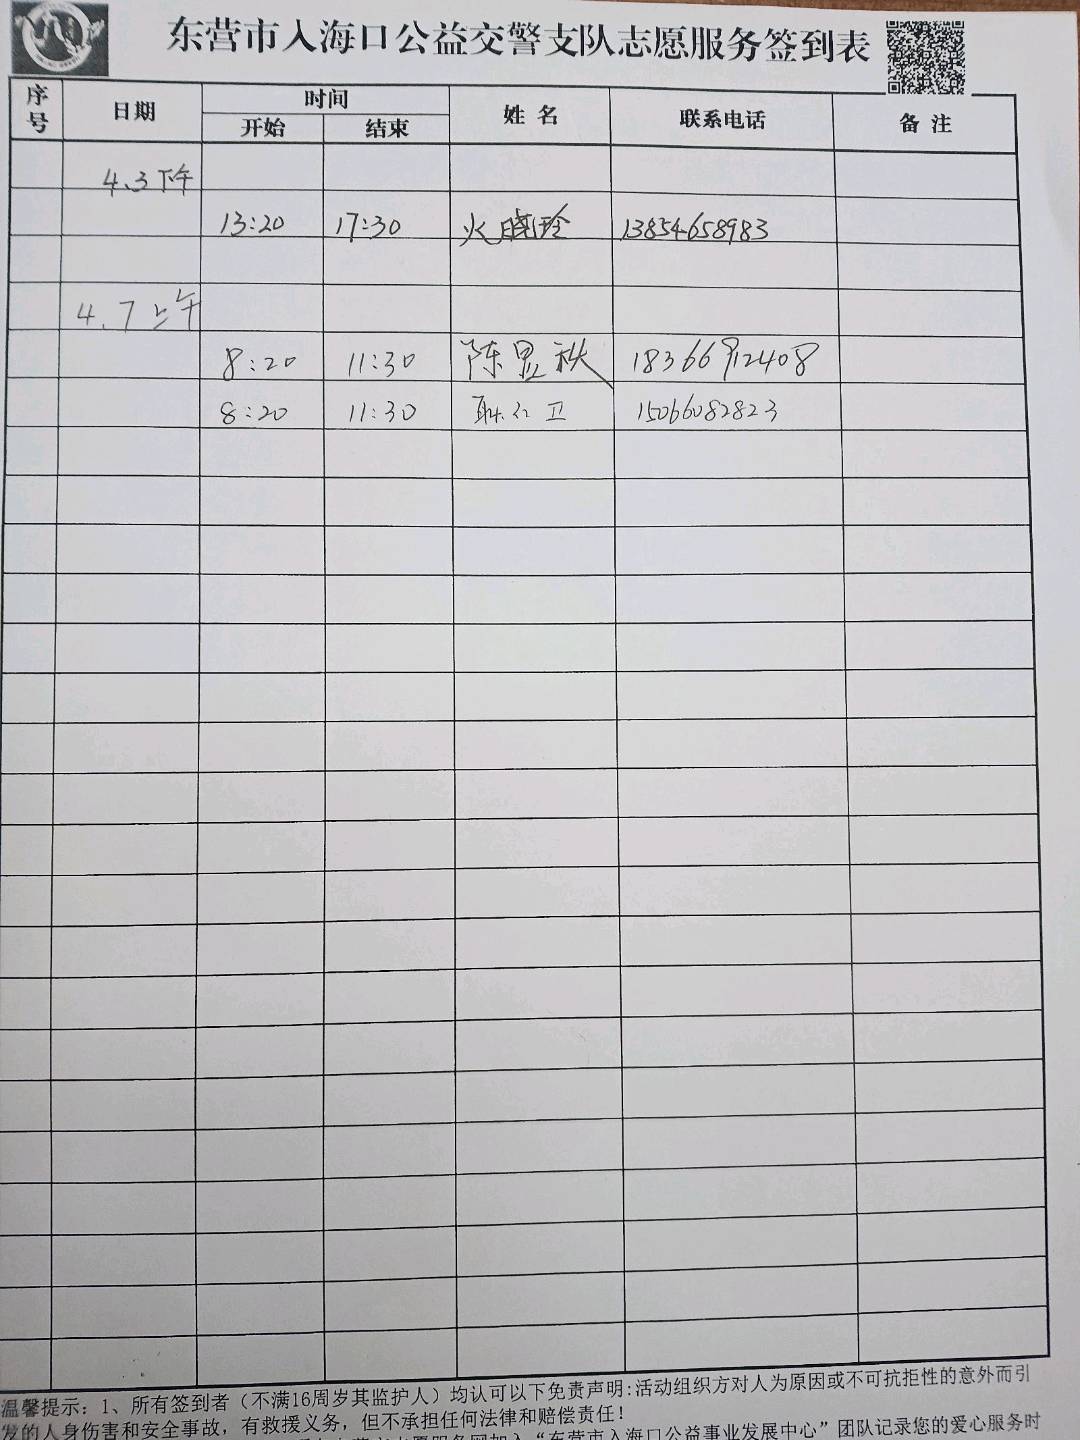 东营市入海口公益交警支队志愿服务签到表
序号 日期 时间 姓名 联系电话 备注
开始 结束
4.3下午
13:20 17:30 火晓玲 13854658983
4.7上午
8:20 11:30 陈显 18366912408
8:20 11:30 卫 15066082823
温馨提示：1、所有签到者（不满16周岁其监护人）均认可以下免责声明:活动组织方对人为原因或不可抗拒性的意外而引
发的人身伤害和安全事故，有救援义务，但不承担任何法律和赔偿责任！
加入“东营市入海口公益事业发展中心”团队记录您的爱心服务时